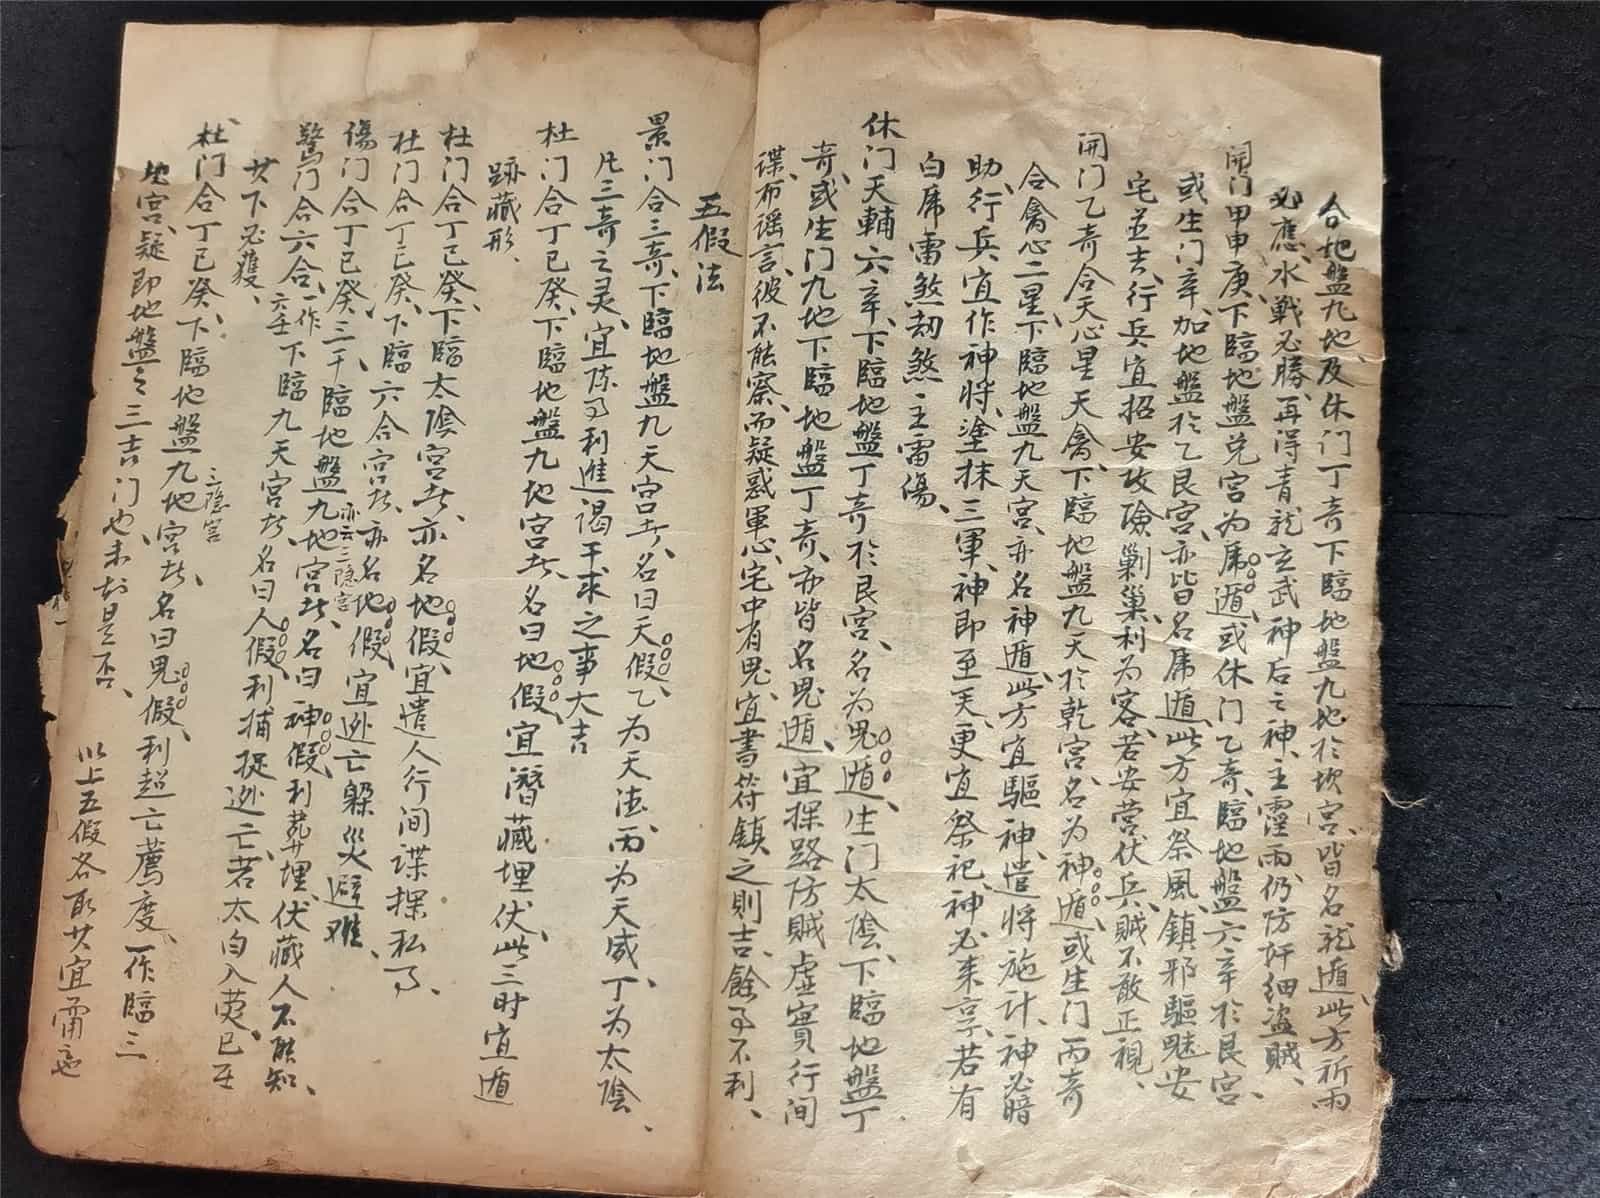 合地盤九地、及休门丁奇下臨地盤九地於坎宫、皆名龍遁、此方祈雨
必應、水戰必勝、再得青龍玄武神后之神、主霪雨、仍防奸细盗贼、
開门甲申庚、下臨地盤兑宫为虎遁、或休门乙奇、臨地盤六辛於艮宫、
或生门辛、加地盤於乙艮宫、亦皆名虎遁、此方宜祭風鎮邪驅魅安
宅並吉、行兵宜招安攻險剿巢、利为客、若安营伏兵、贼不敢正視、
開门乙奇合天心星天禽、下臨地盤九天於乾宫、名为神遁、或生门丙奇
合禽心二星、下臨地盤九天宫、亦名神遁、此方宜驅神遣将施计、神必暗
助、行兵宜作神將、塗抹三軍、神即至天、更宜祭祀、神必来享、若有
白虎雷煞劫煞主雷傷、
休门天輔六辛、下臨地盤丁奇於艮宫、名为鬼遁、生门太陰、下臨地盤丁
奇、或生门九地下臨地盤丁奇、亦皆名鬼遁、宜探路防贼虚實行间
谍、布谣言、彼不能察、而疑惑軍心、宅中有鬼、宜書符鎮之則吉、餘事不利、
五假法
景门合三奇、下臨地盤九天宫者、名曰天假、乙为天德、丙为天威、丁为太陰、
凡三奇之灵、宜陈事利進謁干求之事大吉
杜门合丁已癸、下臨地盤九地宫者、名曰地假、宜潛藏埋伏、此三时宜遁
跡藏形、
杜门合丁已癸、下臨太陰宫者、亦名地假、宜遣人行间谍探私事、
杜门合丁已癸、下臨六合宫者、亦名地假、宜逊亡躱災避难、
傷门合丁已癸、三干臨地盤九地宫者、亦云三隐宫名曰神假、利葬埋、伏藏人不能知、
驚门合六合、一作六壬下臨九天宫者、名曰人假、利捕捉逊亡、若太白入荧、已在
其下必獲、
杜门合丁已癸、下臨地盤九地宫者、三隐宫名曰鬼假、利超亡薦度、一作臨三
地宫、疑即地盤之三吉门也、未知是否、
以上五假各取其宜需也